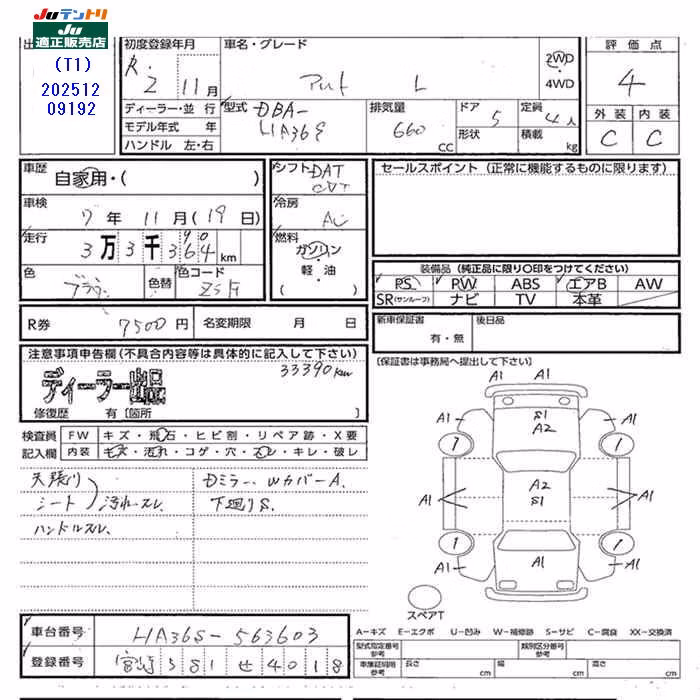 Juテントリ
Ju
適正販売店
(T1)
202512
09192
初度登録年月
R.2 11月
車名・グレード
L
2WD
4WD
評価点
4
外装 内装
C C
ディーラー・並行
モデル年式 年
ハンドル 左・右
型式 DBA-
HA36S
排気量
660
CC
ドア 5
形状
定員 4人
積載 kg
車歴 自家用・( )
車検 7年11月(19日)
走行 3万3千364km
90
色
色替
色コード
R券 7500円 名変期限 月 日
シフト DAT
CVT
冷房 AC
燃料 ガソリン
・
軽・油
( )
セールスポイント (正常に機能するものに限ります)
装備品 (純正品に限り○印をつけてください)
PS PW ABS エアB AW
SR(サンルーフ) ナビ TV 本革
新車保証書
有・無
後日品
(保証書は事務局へ提出して下さい)
注意事項申告欄(不具合内容等は具体的に記入して下さい)
33390km
ディーラー出品
修復歴 有 [箇所 ]
検査員 FW キズ・飛石・ヒビ割・リペア跡・X要
記入欄 内装 キズ・汚れ・コゲ・穴・スレ・キレ・破レ
天張り
シート
汚れスレ
ハンドルスレ
Dミラー、WカバーA.
下廻りS.
A1
A1 A1
A1 S1 A1
A2
1 1
A2
A1 S1 A1
1 1
A1 A1 A1
スペアT
A-キズ E-エクボ U-凹み W-補修跡 S-サビ C-腐食 XX-交換済
車台番号 HA36S-563603
登録番号 宮崎581せ4018
型式指定番号
参考
類別区分番号
参考
車庫証明用
参考
長さ cm
幅 cm
高さ cm